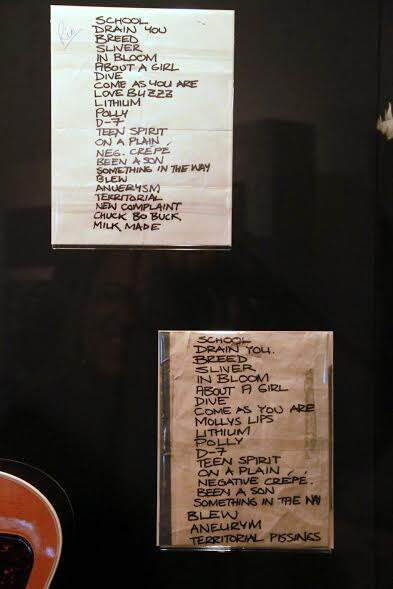 SCHOOL
DRAIN YOU
BREED
SLIVER
IN BLOOM
ABOUT A GIRL
DIVE
COME AS YOU ARE
LOVE BUZZZ
LITHIUM
POLLY
D-7
TEEN SPIRIT
ON A PLAIN
NEG. CRÉPÉ
BEEN A SON
SOMETHING IN THE WAY
BLEW
ANUERYSM
TERRITORIAL
NEW COMPLAINT
CHUCK BO BUCK
MILK MADE
SCHOOL
DRAIN YOU.
BREED
SLIVER
IN BLOOM
ABOUT A GIRL
DIVE
COME AS YOU ARE
MOLLYS LIPS
LITHIUM
POLLY
D-7
TEEN SPIRIT
ON A PLAIN
NEGATIVE CRÉPÉ.
BEEN A SON
SOMETHING IN THE WA
BLEW
ANEURYM
TERRITORIAL PISSINGS